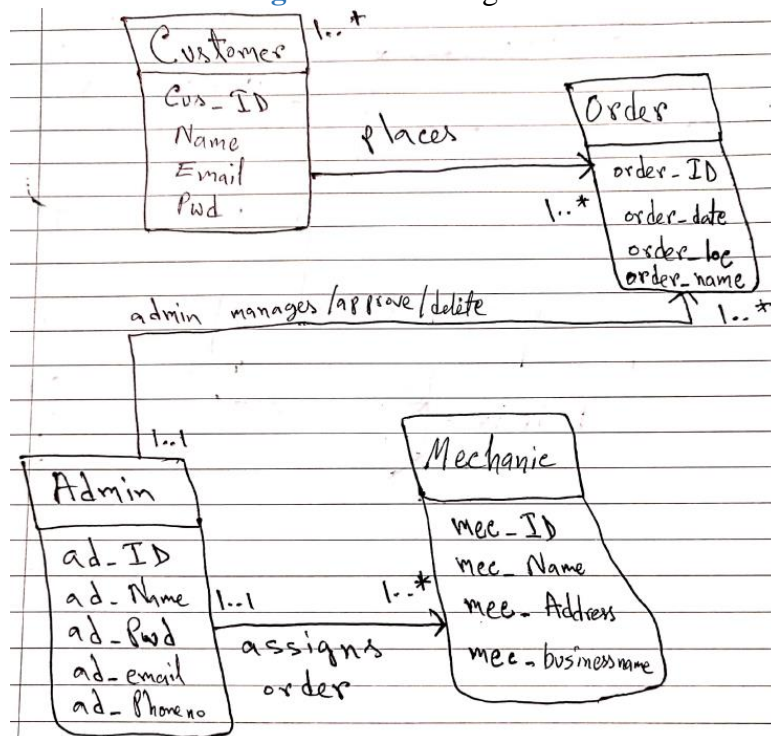 1..*
Customer
Cus_ID
Name
Email
Pwd.
places
1..*
Order
order_ID
order_date
order_loc
order_name
admin manages/approve/delete
1..*
1..1
Admin
ad_ID
ad_Name
ad_Pwd
ad_email
ad_Phoneno
1..1
1..*
assigns
order
Mechanic
mec_ID
mec_Name
mec_Address
mec_businessname